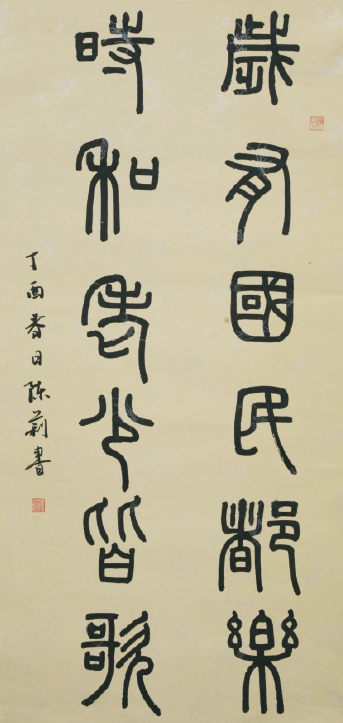 歲有國民都樂
時和老少皆歌
丁酉春日陈莉書